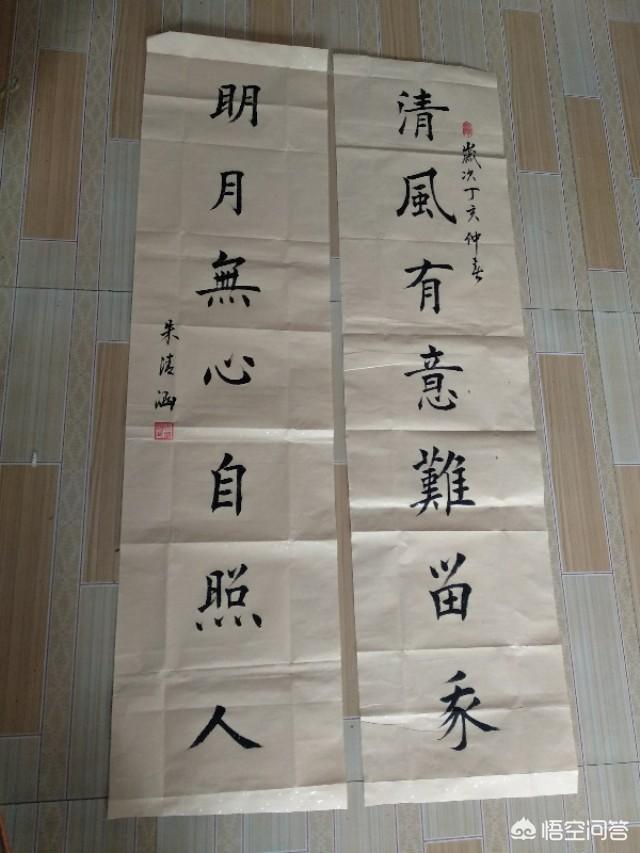 歲次丁亥仲春
清風有意難留我
明月無心自照人
朱清涵
悟空问答